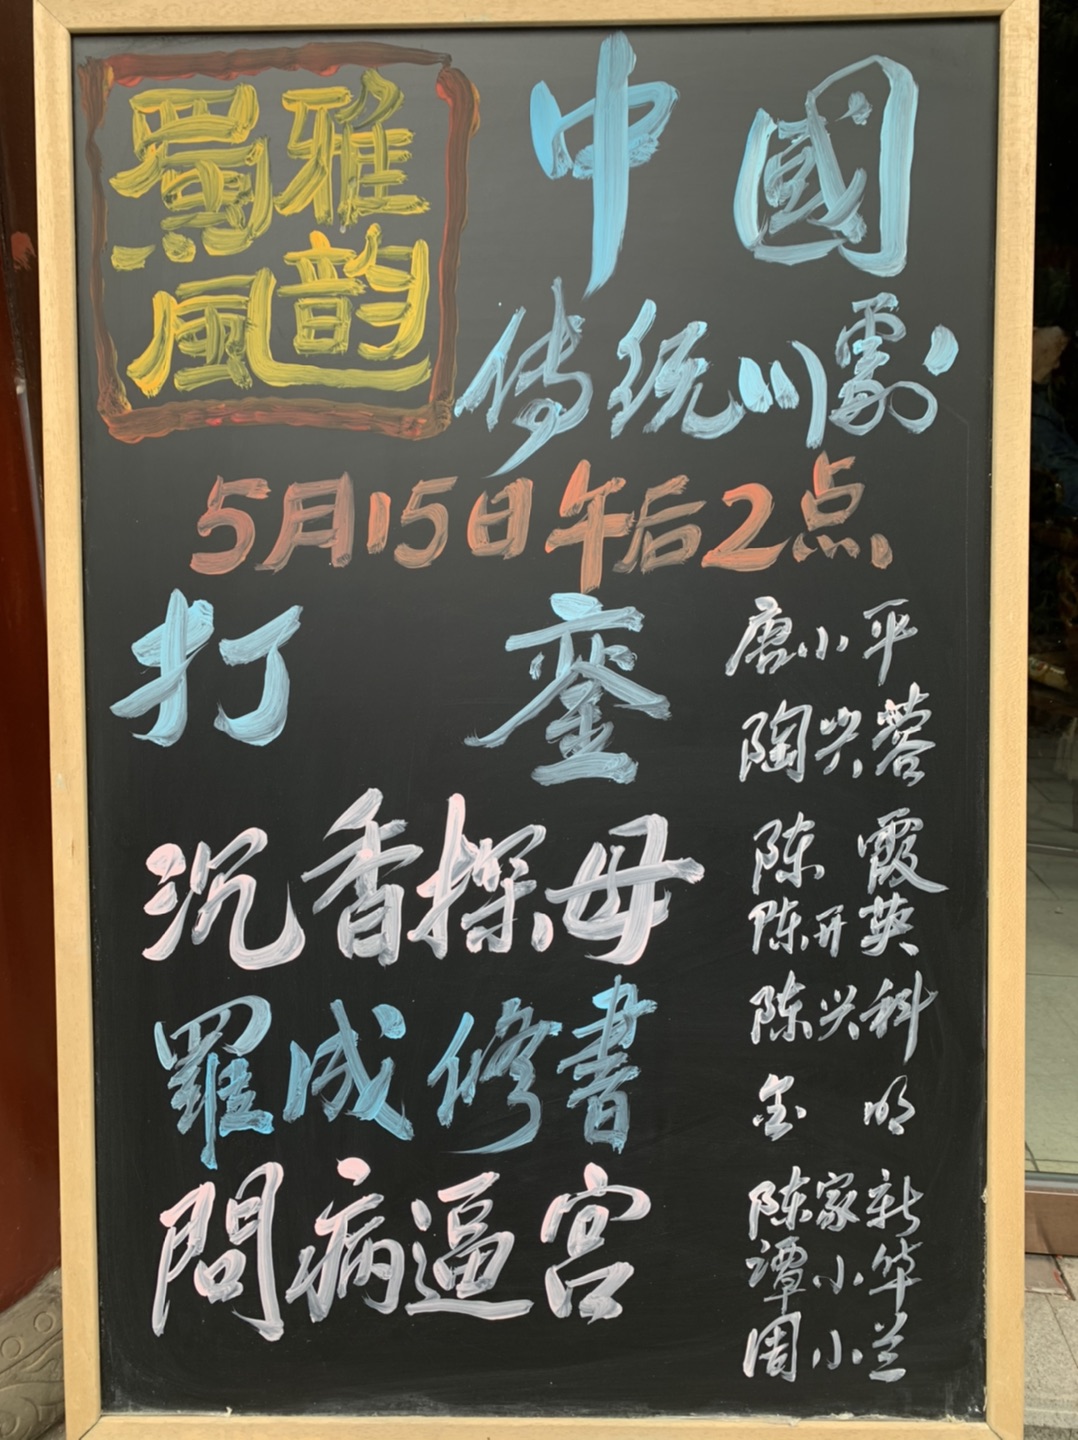 蜀風
雅韵
中國
传统川劇
5月15日午后2点
打銮
唐小平
陶兴蓉
沉香探母
陈霞
陈开英
羅成修書
陈兴科
金明
問病逼宫
陈家新
谭小
周小兰